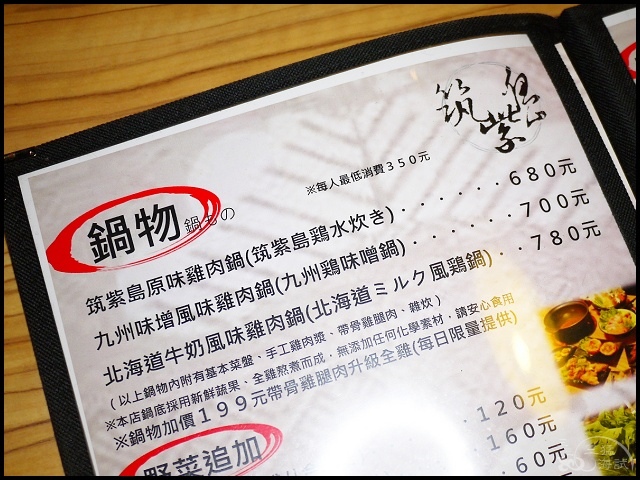 筑紫島
※每人最低消費350元
鍋物 鍋もの
筑紫島原味雞肉鍋(筑紫島鶏水炊き)......680元
九州味增風味雞肉鍋(九州鶏味噌鍋)....700元
北海道牛奶風味雞肉鍋(北海道ミルク風鶏鍋)..780元
(以上鍋物內附有基本菜盤、手工雞肉漿、帶骨雞腿肉、雜炊)
※本店鍋底採用新鮮蔬果、全雞熬煮而成,無添加任何化學素材,請安心食用
※鍋物加價199元帶骨雞腿肉升級全雞(每日限量提供)
野菜追加
120元
160元
60元